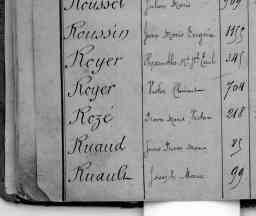 Roussel Julien Marie 769
Roussin Jean Marie Eugène 1159
Royer 345
Royer Victor Clément 704
Rozé Pierre Marie 218
Ruaud Jean Pierre Marie 85
Ruault Joseph Marie 99